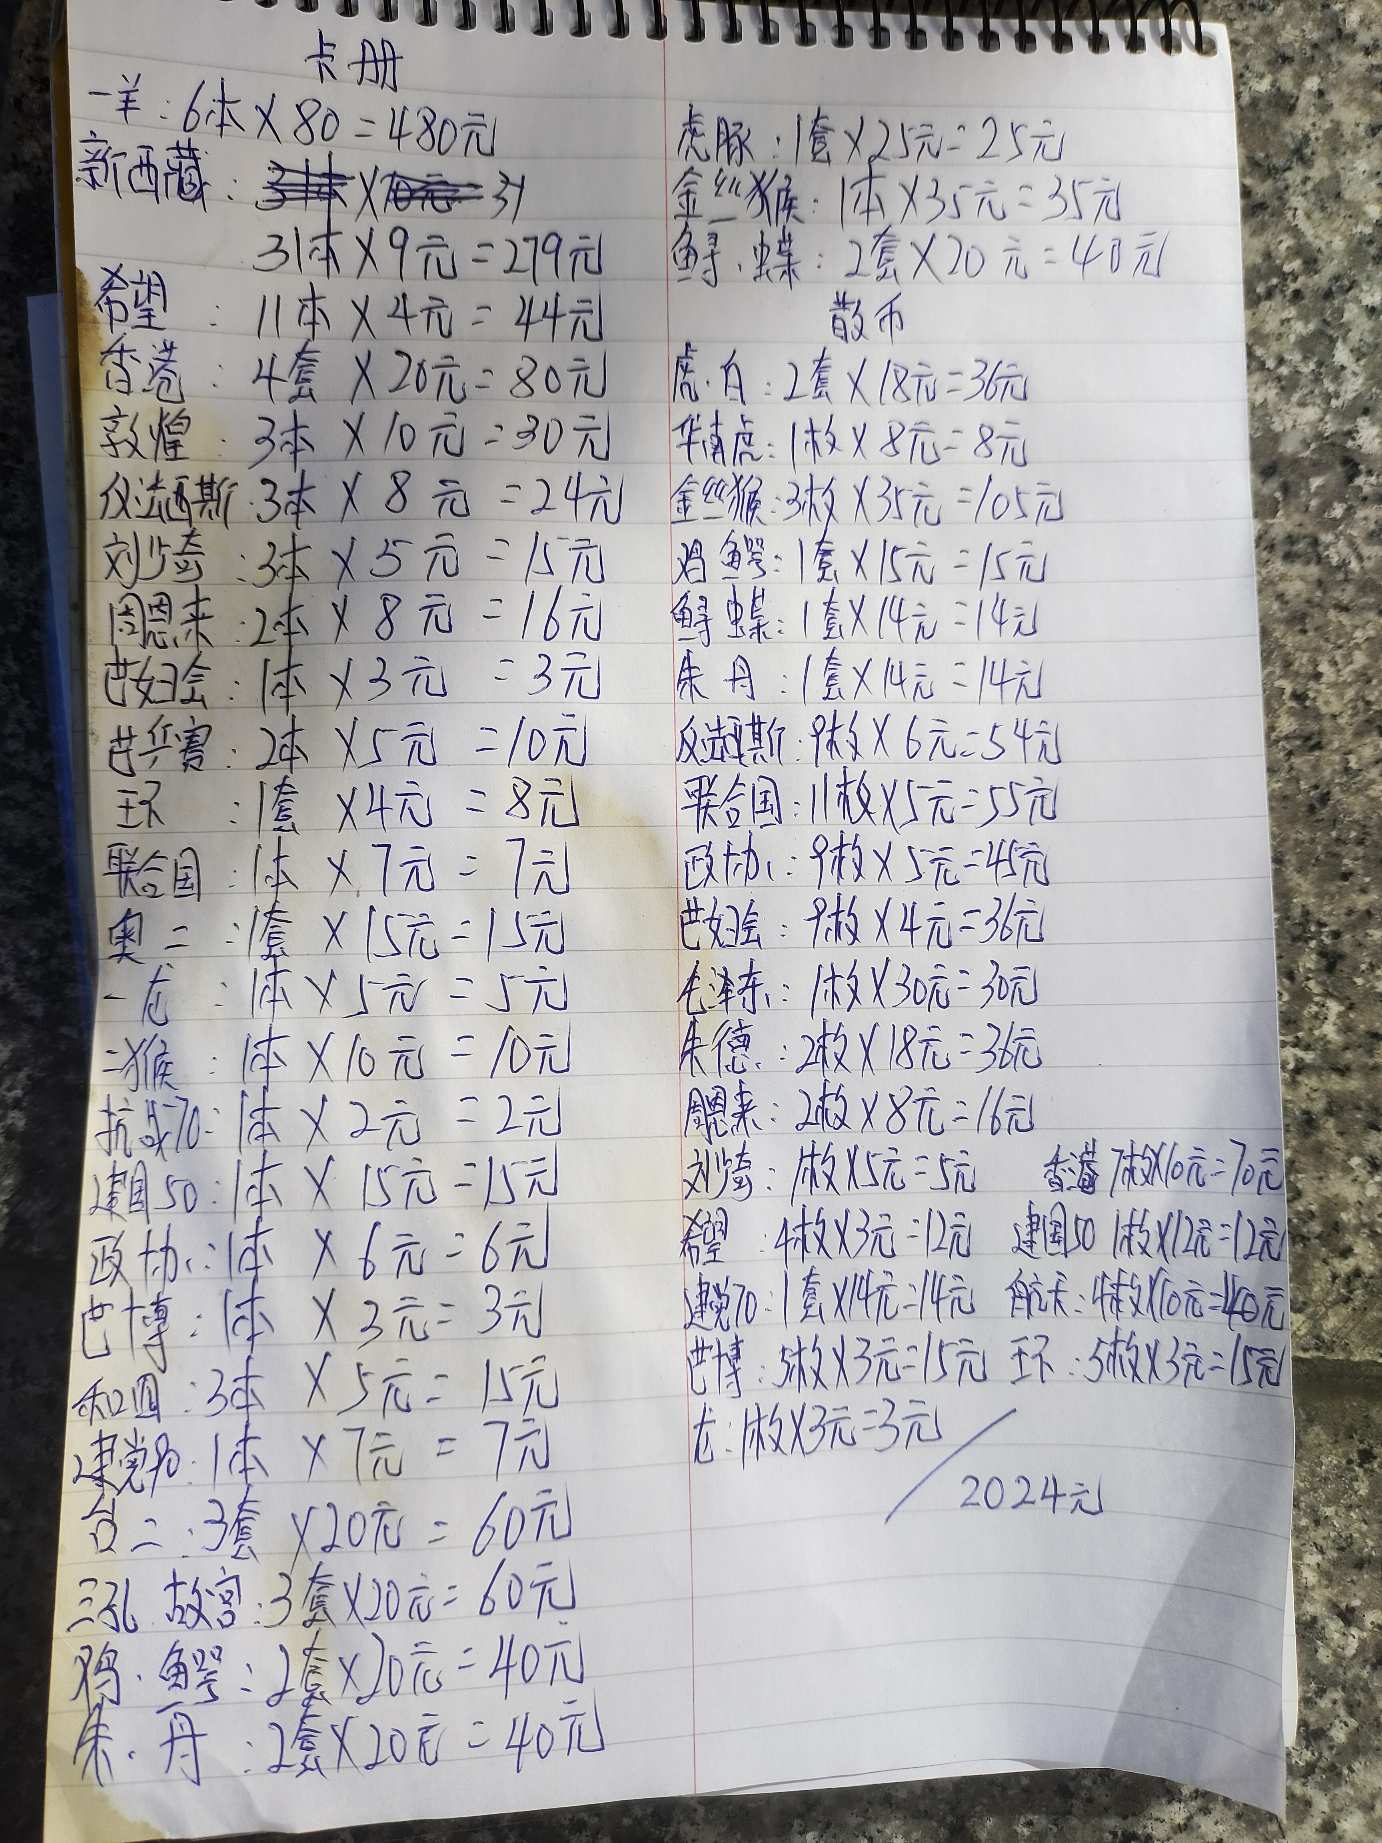 卡册
一羊：6本×80=480元
新西藏：
31本×9元=279元
希望：11本×4元=44元
香港：4套×20元=80元
敦煌：3本×10元=30元
仪法西斯：3本×8元=24元
刘少奇：3本×5元=15元
周恩来：2本×8元=16元
芭妇会：1本×3元=3元
芭乒赛：2本×5元=10元
王环：1套×4元=8元
联合国：1本×7元=7元
奥二：1套×15元=15元
一龙：1本×5元=5元
二猴：1本×10元=10元
抗战70：1本×2元=2元
建国50：1本×15元=15元
政协：1本×6元=6元
巴博：1本×3元=3元
和四：3本×5元=15元
建党90：1本×7元=7元
台二：3套×20元=60元
三孔 故宫：3套×20元=60元
鸡.鳄：2套×20元=40元
朱.丹：2套×20元=40元
虎豚：1套×25元=25元
金丝猴：1本×35元=35元
鲟.蝶：2套×20元=40元
散币
虎.白：2套×18元=36元
华南虎：1枚×8元=8元
金丝猴：3枚×35元=105元
鸡鳄：1套×15元=15元
鲟蝶：1套×14元=14元
朱丹：1套×14元=14元
反法西斯：9枚×6元=54元
联合国：11枚×5元=55元
政协：9枚×5元=45元
芭妇会：9枚×4元=36元
毛泽东：1枚×30元=30元
朱德：2枚×18元=36元
周恩来：2枚×8元=16元
刘少奇：1枚×5元=5元 香港 7枚×10元=70元
希望：4枚×3元=12元 建国50 1枚×12元=12元
建党70：1套×14元=14元 航天：4枚×10元=40元
芭博：5枚×3元=15元 王环：5枚×3元=15元
龙：1枚×3元=3元
2024元